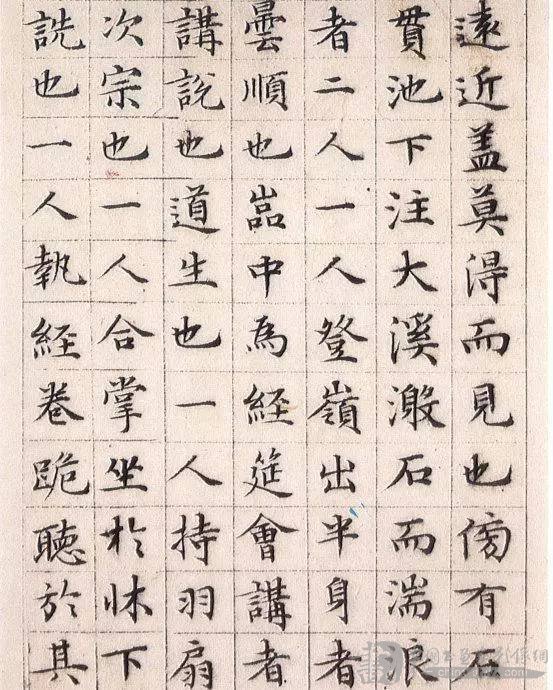 遠近盖莫得而見也傍有
貫池下注大溪激石而湍浪
者二人一人登嶺出半身者
曇順也嵓中為經筵會講者
講說也道生也一人持羽扇
次宗也一人合掌坐於牀下
詵也一人執經卷跪聽於其